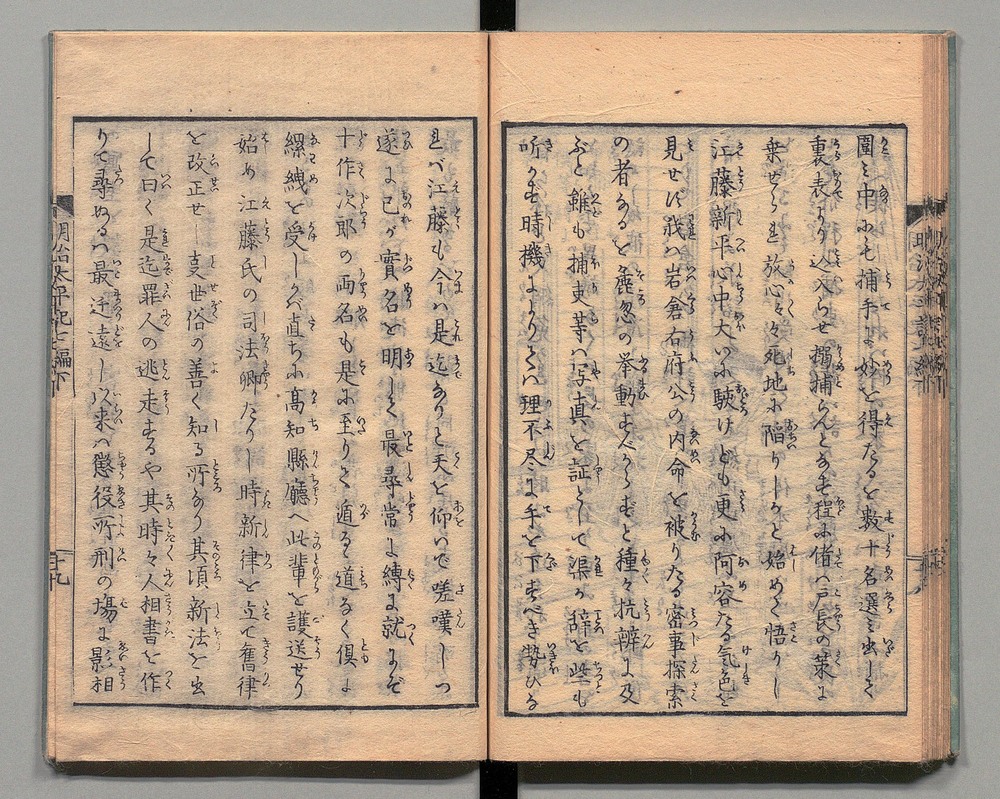 圍ミ中にも捕手に妙を得たるを數十名選ミ出して
裏表より込入らせ搦捕らんとなす程に偖ハ戸長の策に
乗せられ旅心々々死地に陥りしかと始めて悟りし
江藤新平心中大いに駭けども更に阿容たる気色を
見せず我ハ岩倉右府公の内命を被りたる密事探索
の者なるを麁忽の挙動すべからずと種々抗辯に及
ぶと雖も捕吏等ハ写真を証として渠が辞を些も
听かず時機によりてハ理不尽に手を下すべき勢ひな
れバ江藤も今ハ是迄なりと天を仰いで嗟嘆しつ
遂に己が實名を明して最尋常に縛に就にぞ
十作次郎の両名も是に至りて遁るゝ道なく倶に
縲絏を受しかバ直ちに高知縣廳へ此輩を護送せり
始め江藤氏の司法卿たりし時新律を立て舊律
を改正せし事世俗の善く知る所なり其頃新法を出
して曰く是迄罪人の逃走するや其時々人相書を作
りて尋ぬるハ最迂遠し以来ハ懲役所刑の場に影相
明治太平記七編下
三十九